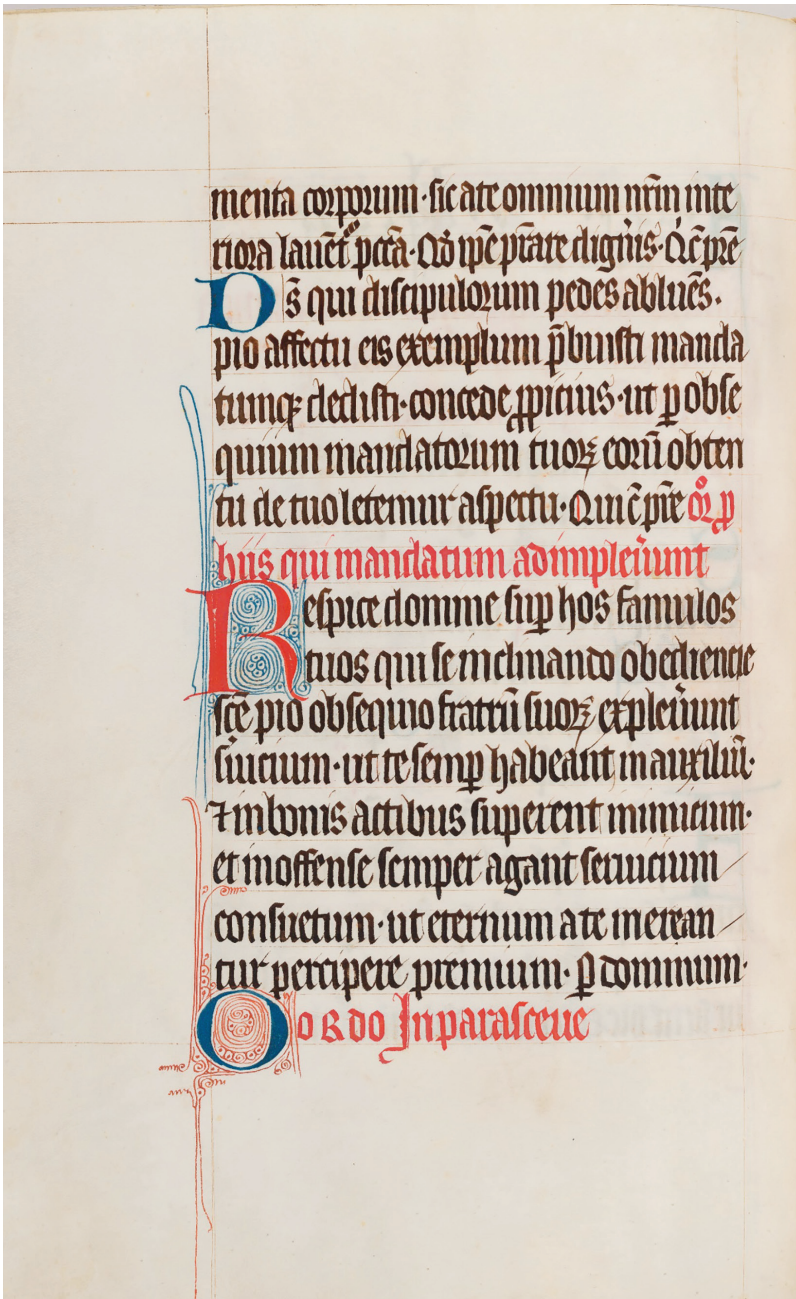 menta corporum·sic a te omnium nr̃m inte
riora lauẽt᷑ pctã·Qd̾ ip̃e p̃stare digñis·Q̃ c̃ pr̃e
Ds̃ qui discipulorum pedes abluẽs·
pio affectu eis exemplum p̃buisti manda
tumqꝫ dedisti·concede ꝓpicius·ut ꝑ obse
quium mandatorum tuoꝝ eorũ obten
tu de tuo letemur aspectu·Qui c̃ pr̃e or̃ ꝑ
hiis qui mandatum adimpleu̾unt
Respice domine suꝑ hos famulos
tuos qui se inclinando obediencie
sc̃e pio obsequio fratrũ suoꝝ expleu̾unt
s̾uicium·ut te semꝑ habeant in auxiliũ·
⁊ in bonis actibus superent inimicum·
et inoffense semper agant seruicium
consuetum·ut eternum a te merean
tur percipere premium·ꝑ dominum·
O oRDO In parasceue